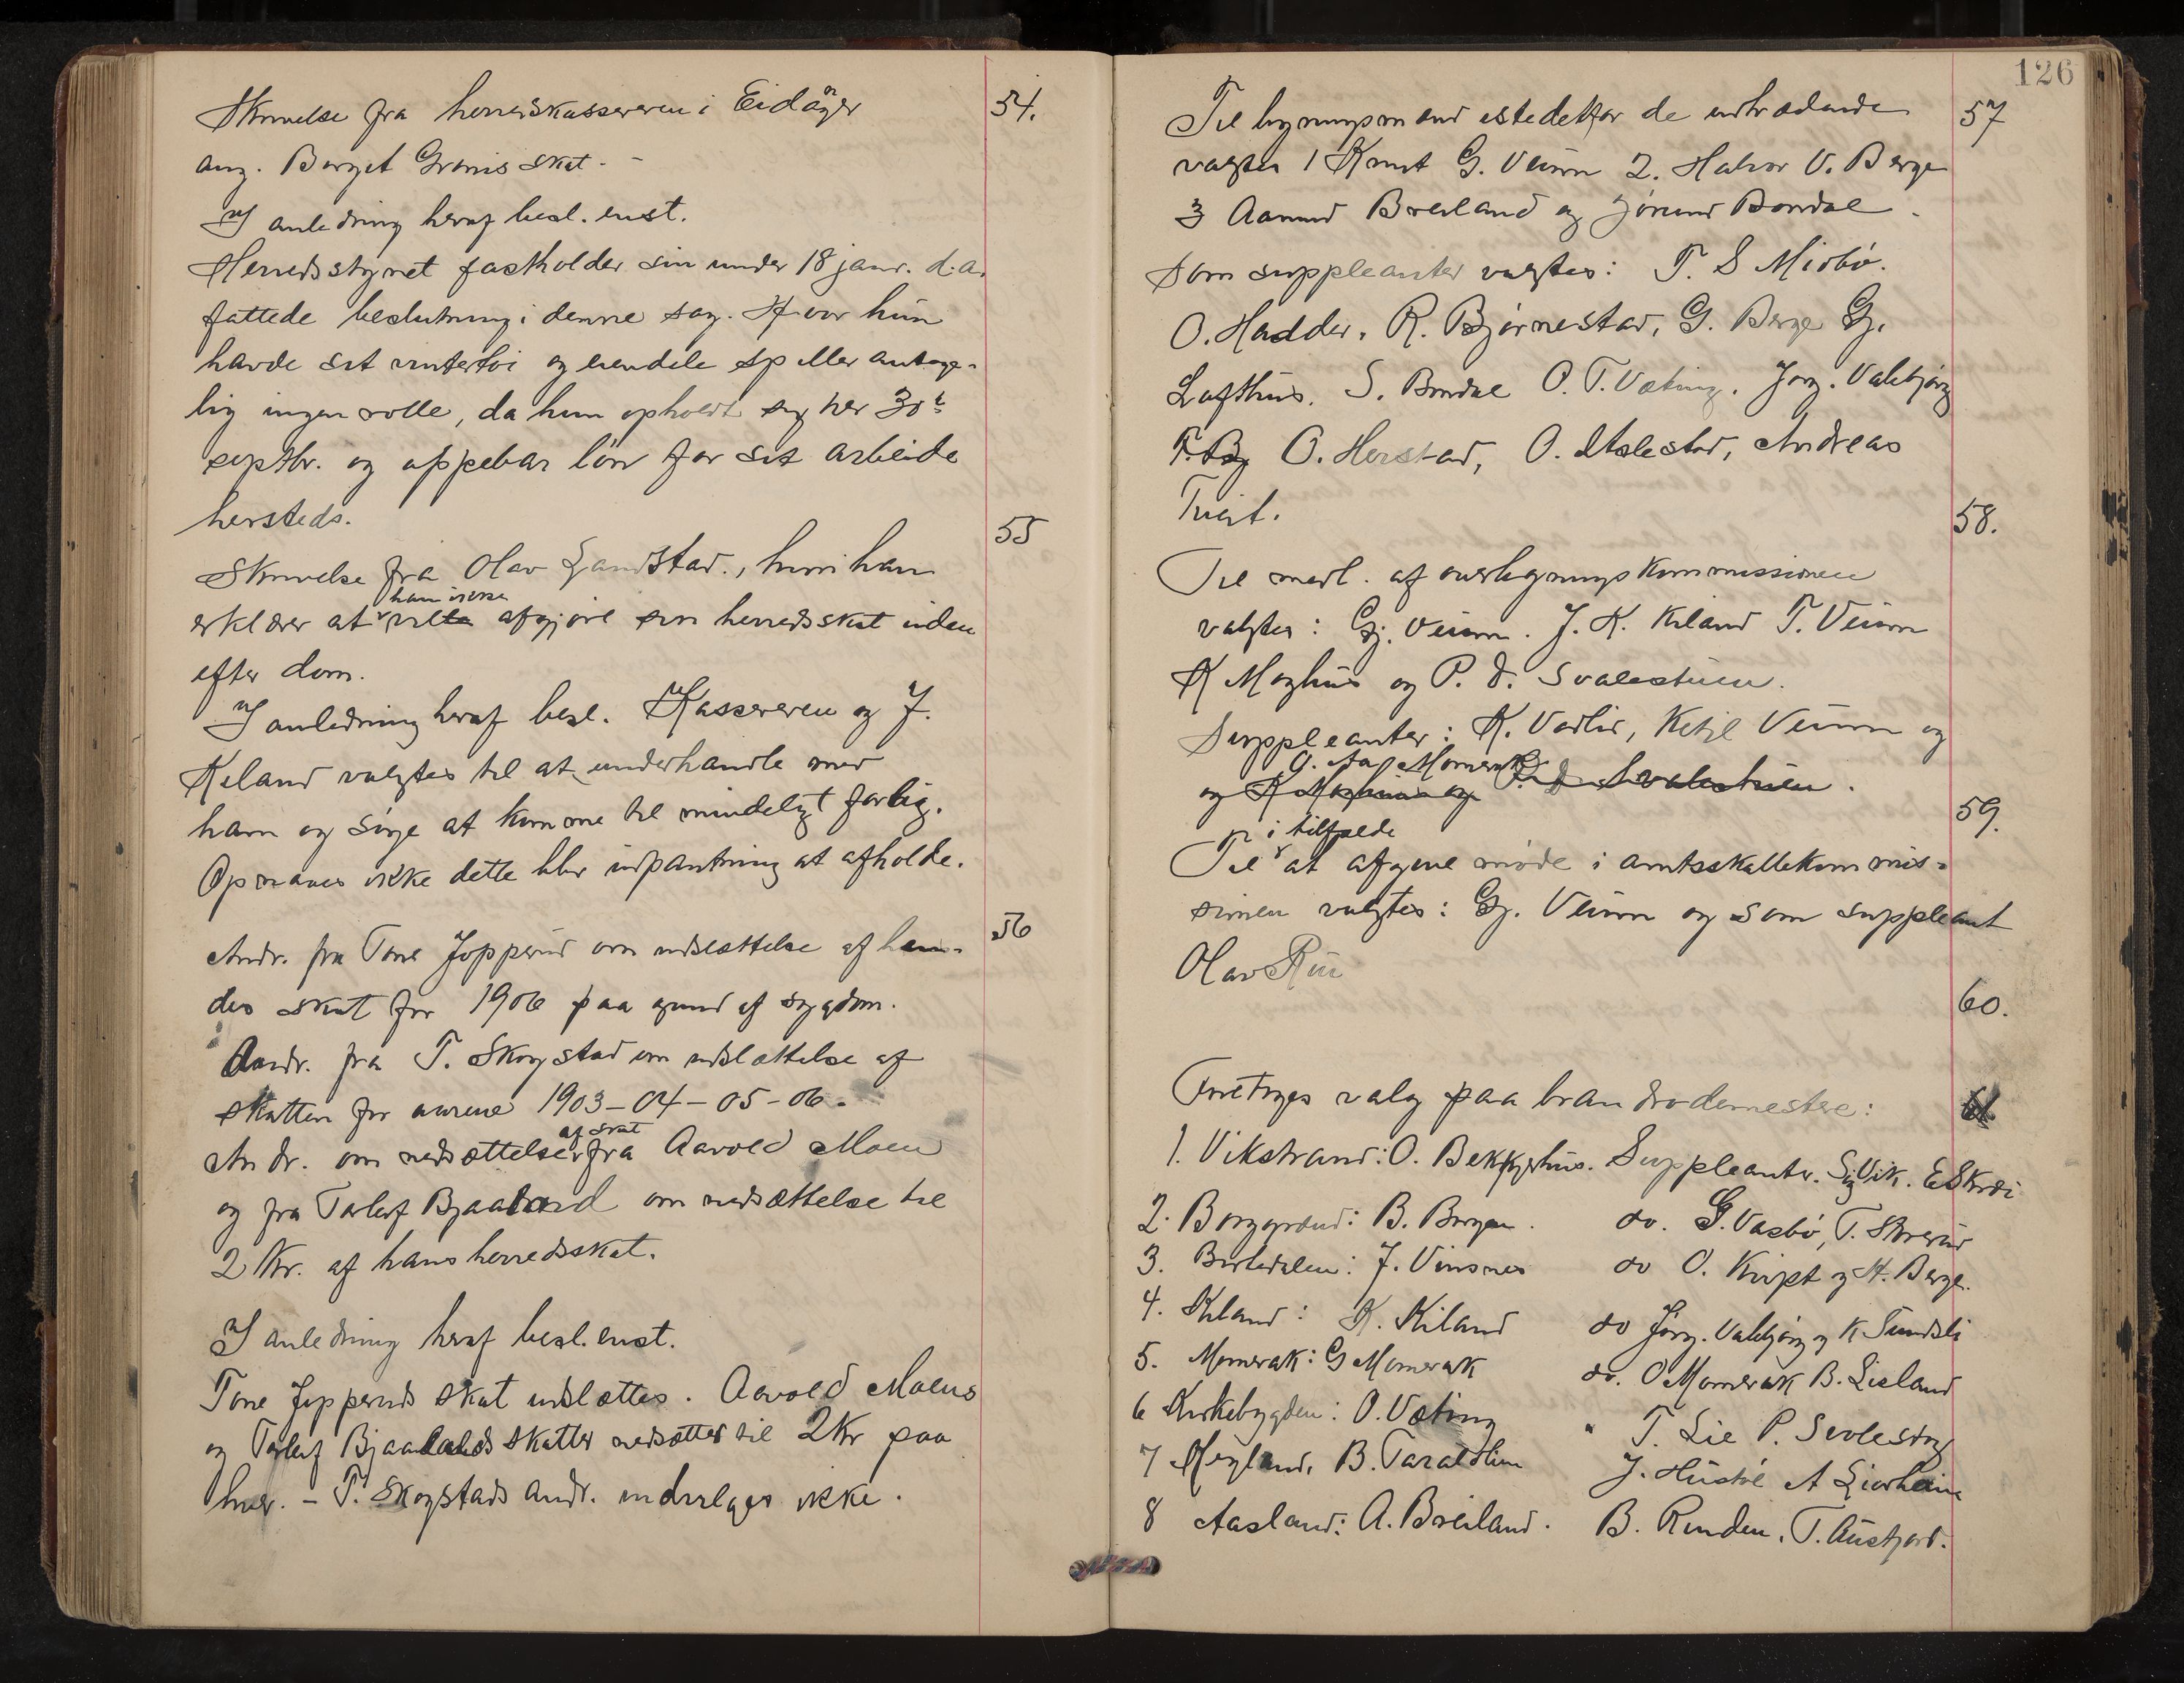 54.
Skrivelse fra herredskassereren i Eidanger
ang. Borgit Gronis skat. -
I anledning heraf besl. enst.
Herredsstyret fastholder sin under 18 janr. d.a.
fattede beslutning i denne sag. Hvor hun
havde sit vintertøi og eiendele spiller antage-
lig ingen rolle, da hun opholdt sig her 30t
septbr. og oppebar løn for sit arbeide
hersteds.
55
Skrivelse fra Olav Sandstad., hvori han
erklærer at han ikke vilte afgjøre sin herredsskat uden
efter dom.
I anledning heraf besl. Kassereren og J.
Kiland valgtes til at underhandle med
ham og søge at komme til mindeligt forlig.
Opnaaes ikke dette blir udpantning at afholde.
56
Andr. fra Tone Jopperud om udslættelse af hen-
des skat for 1906 paa grund af sygdom.
Andr. fra T. Skogstad om udslættelse af
skatten for aarene 1903-04-05-06.
Andr. om nedsættelse af skat fra Aavold Moen
og fra Torleif Bjaaland om nedsættelse til
2 Kr. af hans herredsskat.
I anledning heraf besl. enst.
Tone Jopperuds skat udslættes. Aavold Moens
og Torleif Bjaalands skatter nedsættes til 2 Kr paa
hver. - T. Skogstads andr. indvilges ikke.
126
57
Til ligningsmænd istedetfor de udtrædende
valgtes 1 Knut G. Veum 2. Halvor V. Berge
3 Aanund Breiland og Jørund Bondal.
Som suppleanter valgtes: T. S Midbø.
O. Hadder, R. Bjørnestad, G. Berge Gj.
Lofthus. S. Bondal O. T. Væting. Jørg. Valebjørg
T. Bj O. Herstad, O. Utslestad, Andreas
Tveit.
58.
Til medl. af overligningskommissionen
valgtes: Gj. Veum. J. K. Kiland T. Veum
K Moghus og P. D. Svalestuen.
Suppleanter: K. Vadlid, Ketil Veum og
G. Aa. Momrak
og K Moghus og P. D. Svalestuen.
59.
Til i tilfælde at afgive møde i amtsskattekommis-
sionen valgtes: Gj. Veum og som suppleant
Olav Rui
60.
Foretoges valg paa brandrodemestre:
61
1. Vikstrand: O. Bekkhus. Suppleanter. Sig Vik. E Skrædi
2. Borggrænd: B. Borgen. do. G. Vasbø, T. Skrerud
3. Bø­rtedalen: J. Vinsnes do O. Kvipt og H. Berge.
4. Kiland: K. Kiland do Jørg. Valebjørg og K Sundsli
5. Momrak: G Momrak do. O Momrak B. Lisland
6 Kirkebygden: O. Væting " T. Lie P. Svalestog
7 Høgland, B. Taraldlien J. Hustøl A Liosheim
8 Aasland: A. Breiland. B. Rinden, T. Austjord.